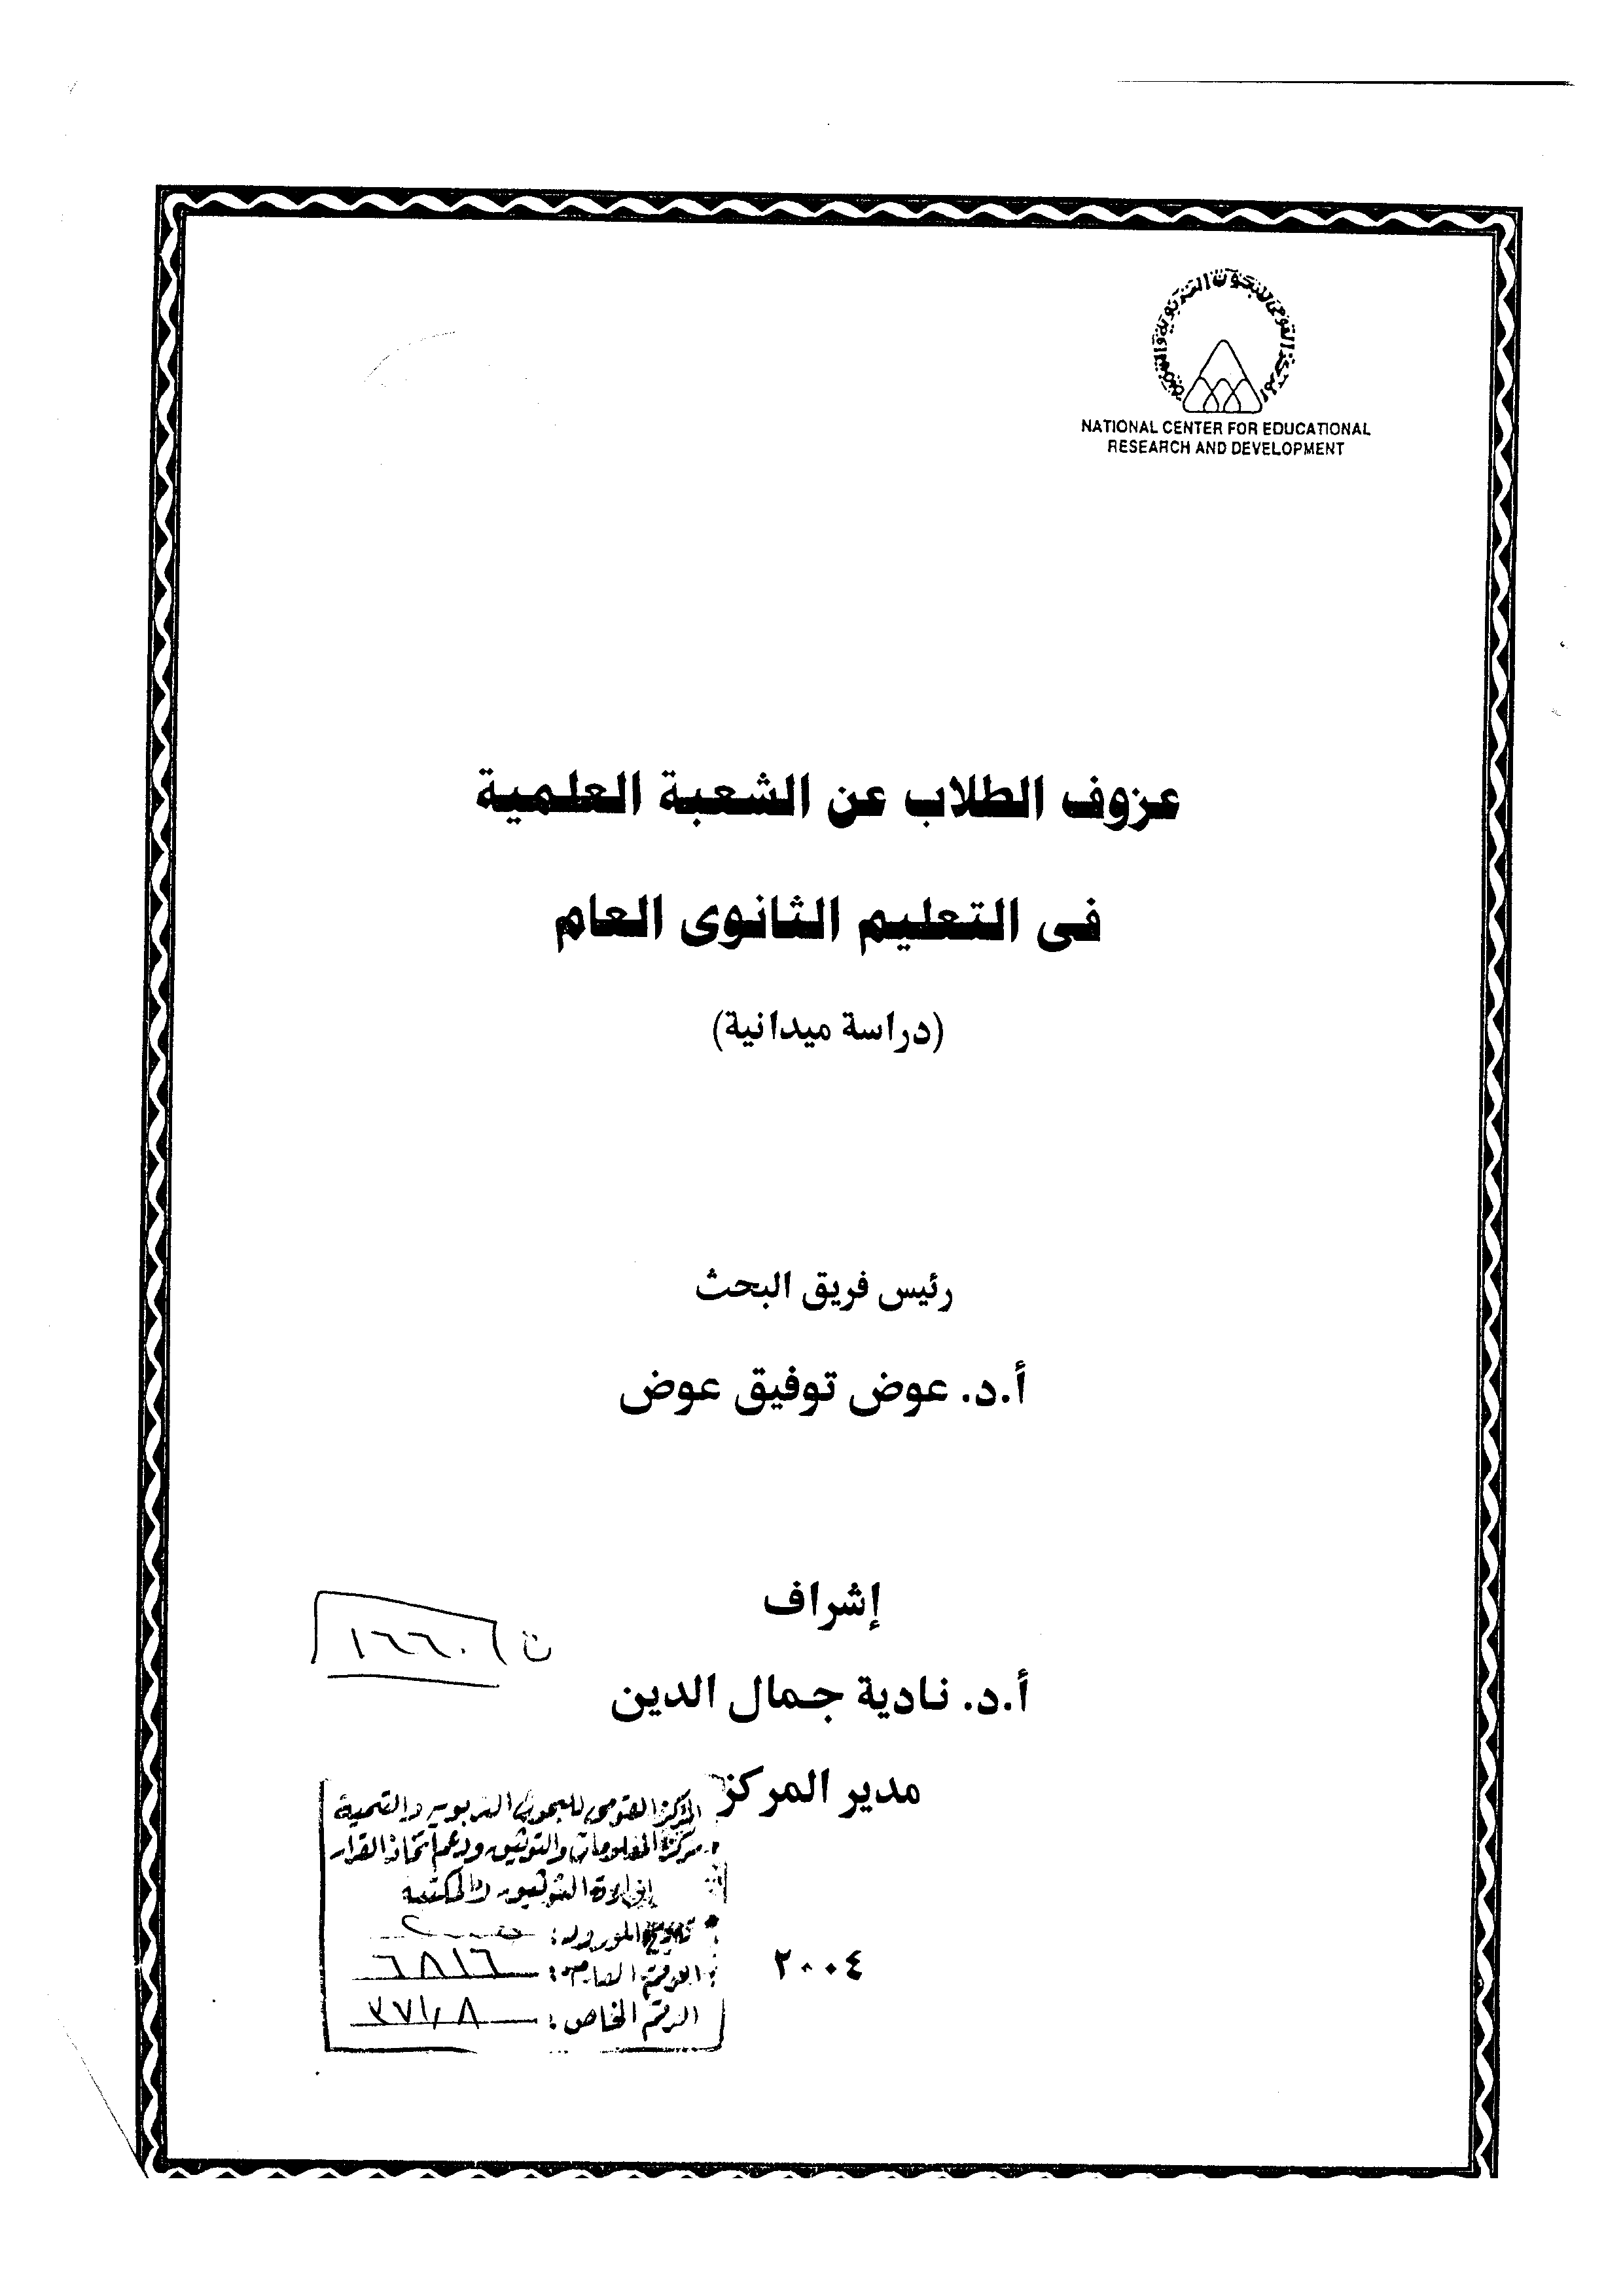 المركز القومى للبحوث التربوية والتنمية
NATIONAL CENTER FOR EDUCATIONAL
RESEARCH AND DEVELOPMENT
عزوف الطلاب عن الشعبة العلمية
فى التعليم الثانوى العام
(دراسة ميدانية)
رئيس فريق البحث
أ.د. عوض توفيق عوض
إشراف
ن ١٦٦٠٦
أ.د. نادية جمال الدين
مدير المركز
المركز القومى للبحوث التربوية والتنمية
مركز المعلومات والتوثيق ودعم اتخاذ القرار
إدارة التوثيق والمكتبة
تاريخ الورود:
الرقم العام: ٦٨١٦
الرقم الخاص: ٣٧١,٨
٢٠٠٤